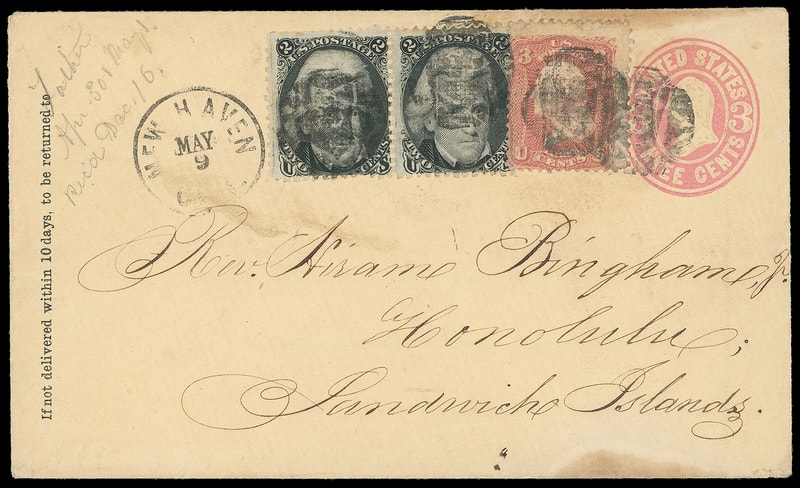 If not delivered within 10 days, to be returned to
Father
Apr 30 & May 1.
Rec'd Dec. 16.
NEW HAVEN
MAY
9
2 U.S. POSTAGE 2
U TWO CENTS. S
2 U.S. POSTAGE 2
U TWO CENTS. S
3 U.S.
U CENTS S
UNITED STATES
3
THREE CENTS
Rev. Hiram Bingham, Jr.
Honolulu,
Sandwich Islands.